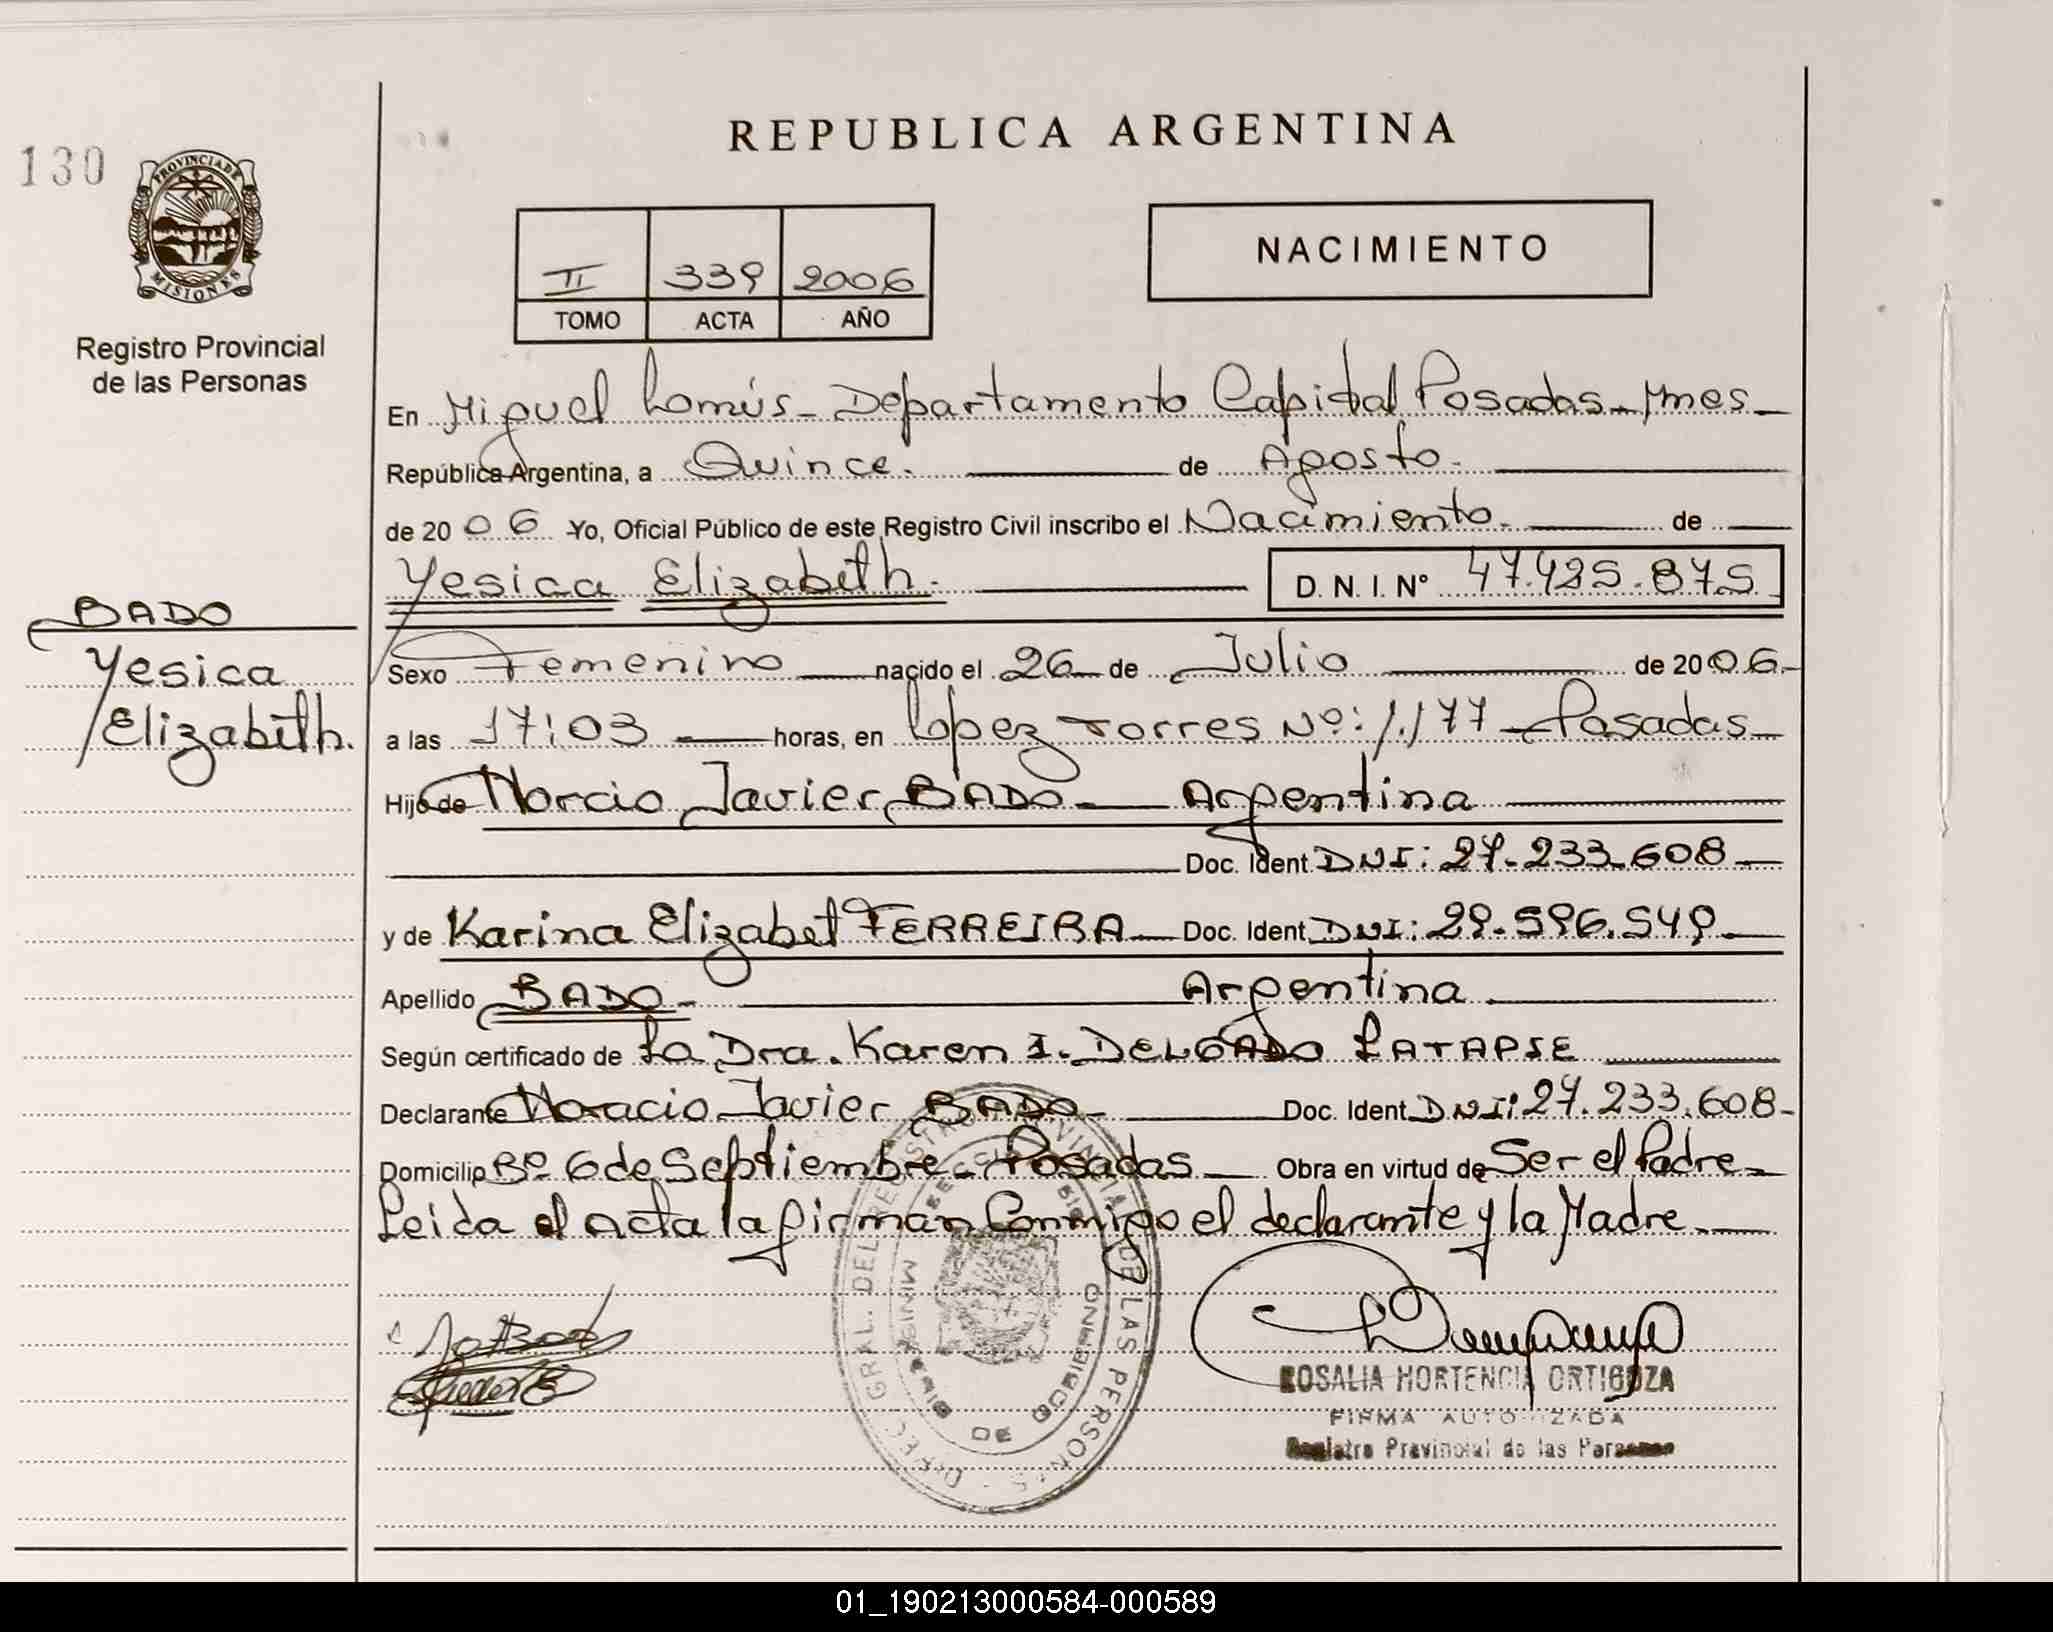 130
PROVINCIA DE
MISIONES
Registro Provincial
de las Personas
REPUBLICA ARGENTINA
II 339 2006
TOMO ACTA AÑO
NACIMIENTO
En Miguel Lomús - Departamento Capital Posadas - Mnes -
República Argentina, a Quince. de Agosto.
de 2006 Yo, Oficial Público de este Registro Civil inscribo el Nacimiento. de
Yesica Elizabeth. D. N. I. Nº 47.425.875
BADO
Yesica
Elizabeth.
Sexo Femenino nacido el 26 de Julio de 2006.
a las 17:03 horas, en Lopez Torres Nº: 1.177 - Posadas
Hijo de Horcio Javier BADO Argentina
Doc. Ident. DNI: 27.233.608
y de Karina Elizabet FERREIRA Doc. Ident. DNI: 29.596.549
Apellido BADO - Argentina
Según certificado de La Dra. Karen I. DELGADO LATAPSE
Declarante Horacio Javier BADO Doc. Ident. DNI: 27.233.608 -
Domicilio Bº 6 de Septiembre - Posadas Obra en virtud de Ser el Padre -
Leida el acta la firman Conmigo el declarante y la Madre.
DIREC. GRAL. DEL REGISTRO PROVINCIAL DE LAS PERSONAS
MINISTERIO DE GOBIERNO
ROSALIA HORTENCIA ORTIGOZA
FIRMA AUTORIZADA
Registro Provincial de las Personas
01_190213000584-000589